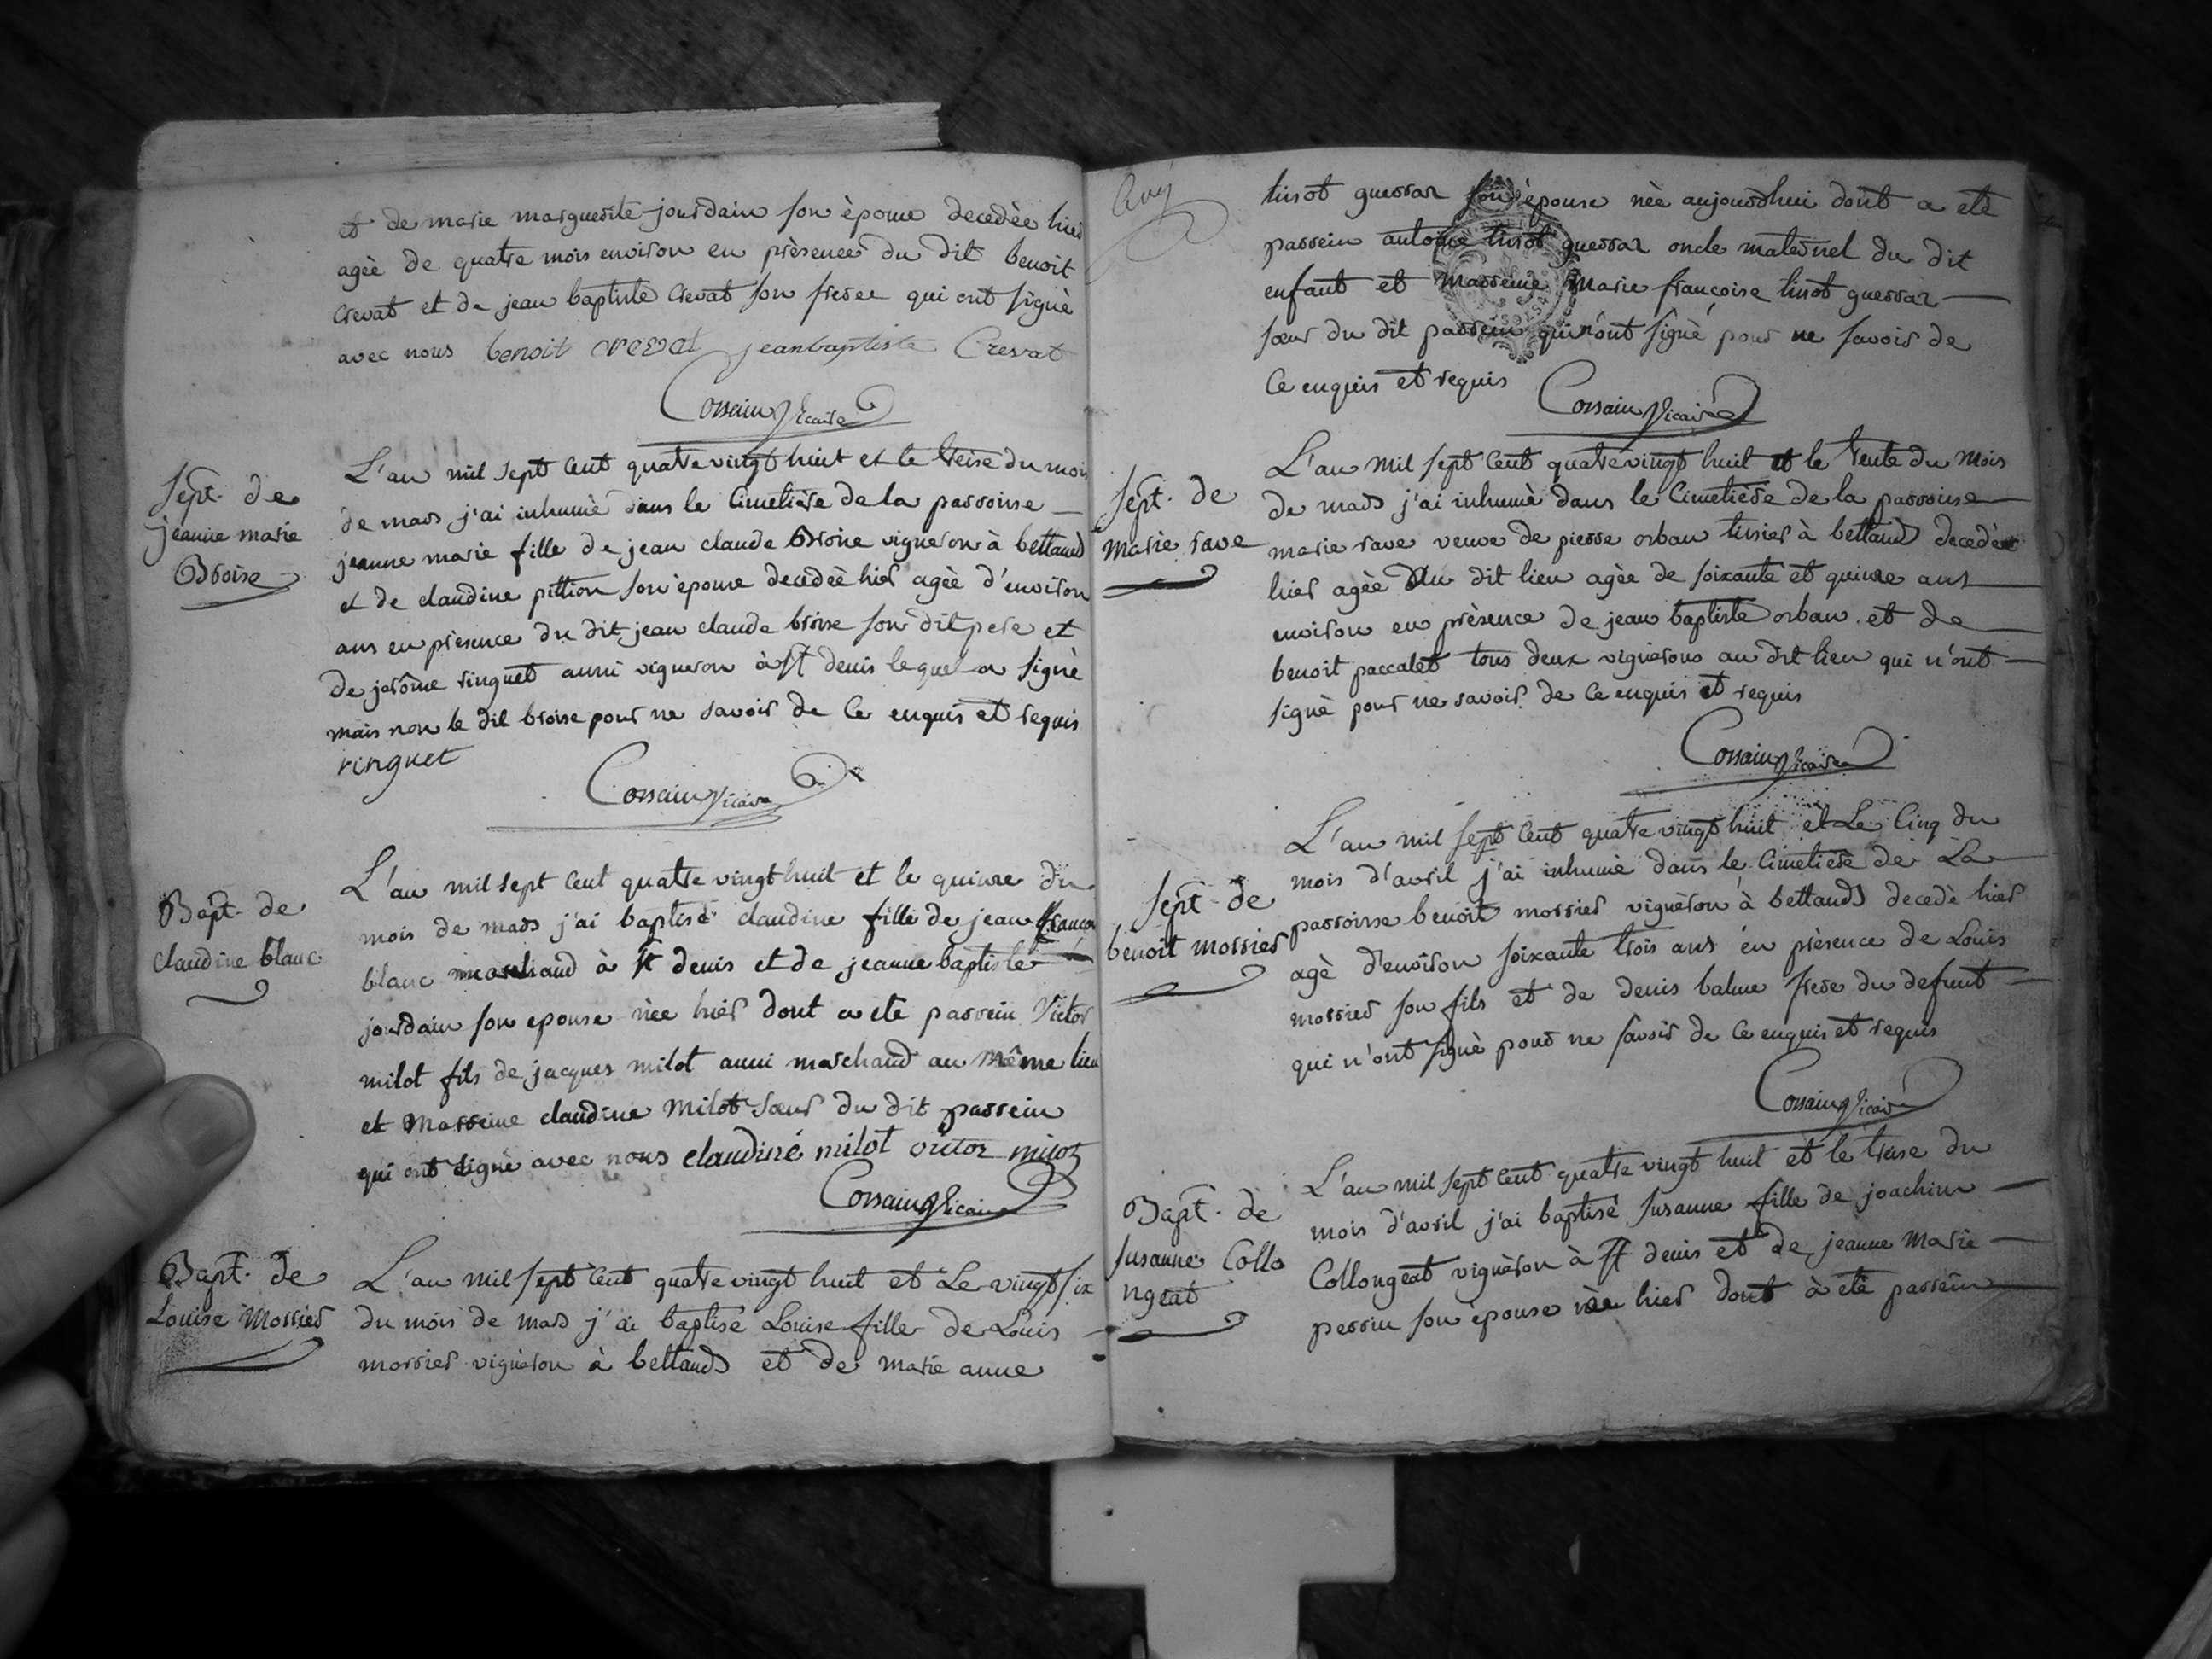 et de marie marguerite jourdain son èpouse decedèe hier
agèe de quatre mois environ en prèsences du dit benoit
crevat et de jean baptiste crevat son frere qui ont signè
avec nous benoit crevat jeanbaptiste Crevat
Corsain Vicaire
Sept. de
jeanne marie
Broise
L'an mil sept cent quatre vingt huit et le treise du mois
de mars j'ai inhumè dans le Cimetière de la parroisse
jeanne marie fille de jean claude Broise vigneron à bettand
et de claudine pittion son èpouse decedèe hier agèe d'environ
ans en prèsence du dit jean claude broise son dit pere et
de jerôme ringuet aussi vigneron à St denis lequel a signè
mais non le dit broise pour ne savoir de Ce enquis et requis
ringuet
Corsain Vicaire
Bapt. de
claudine blanc
L'an mil sept Cent quatre vingt huit et le quinze du
mois de mars j'ai baptisé claudine fille de jean françois
blanc marchand à St denis et de jeanne baptiste
jourdain son epouse nèe hier dont a ete parrein Victor
milot fils de jacques milot aussi marchand au Même lieu
et Marreine claudine Milot sœur du dit parrein
qui ont signè avec nous claudine milot victor milot
Corsain Vicaire
Bapt. de
Louise Morrier
L'an mil sept Cent quatre vingt huit et Le vingt six
du mois de mars j'ai baptisé Louise fille de Louis
morrier vignèron à bettand et de marie anne
tirot guerrar son èpouse nèe aujourdhui dont a etè
parrein antoine tirot guerrar oncle maternel du dit
enfant et Marreine Marie françoise tirot guerrar
sœur du dit parrein qui n'ont signè pour ne savoir de
Ce enquis et requis
Corsain Vicaire
Sept. de
Marie rave
L'an Mil sept Cent quatre vingt huit et le trente du Mois
de mars j'ai inhumè dans le Cimetière de la parroisse
marie rave veuve de pierre orban tissier à bettand decedèe
hier agèe Du dit lieu agèe de soixante et quinze ans
environ en prèsence de jean baptiste orban et de
benoit paccalet tous deux vignerons au dit lieu qui n'ont
signè pour ne savoir de Ce enquis et requis
Corsain Vicaire
Sept. de
benoit morrier
L'an mil sept Cent quatre vingt huit et Le Cinq du
mois d'avril j'ai inhumè dans le Cimetière de La
parroisse benoit morrier vignèron à bettand decedè hier
agè d'environ soixante trois ans en prèsence de Louis
morrier son fils et de denis balme frere du defunt
qui n'ont signè pour ne savoir de Ce enquis et requis
Corsain Vicaire
Bapt. de
Susanne Collo
ngeat
L'an mil sept Cent quatre vingt huit et le treise du
mois d'avril j'ai baptisé Susanne fille de joachim
Collongeat vignèron à St denis et de jeanne Marie
perrin son èpouse nèe hier dont à etè parrein